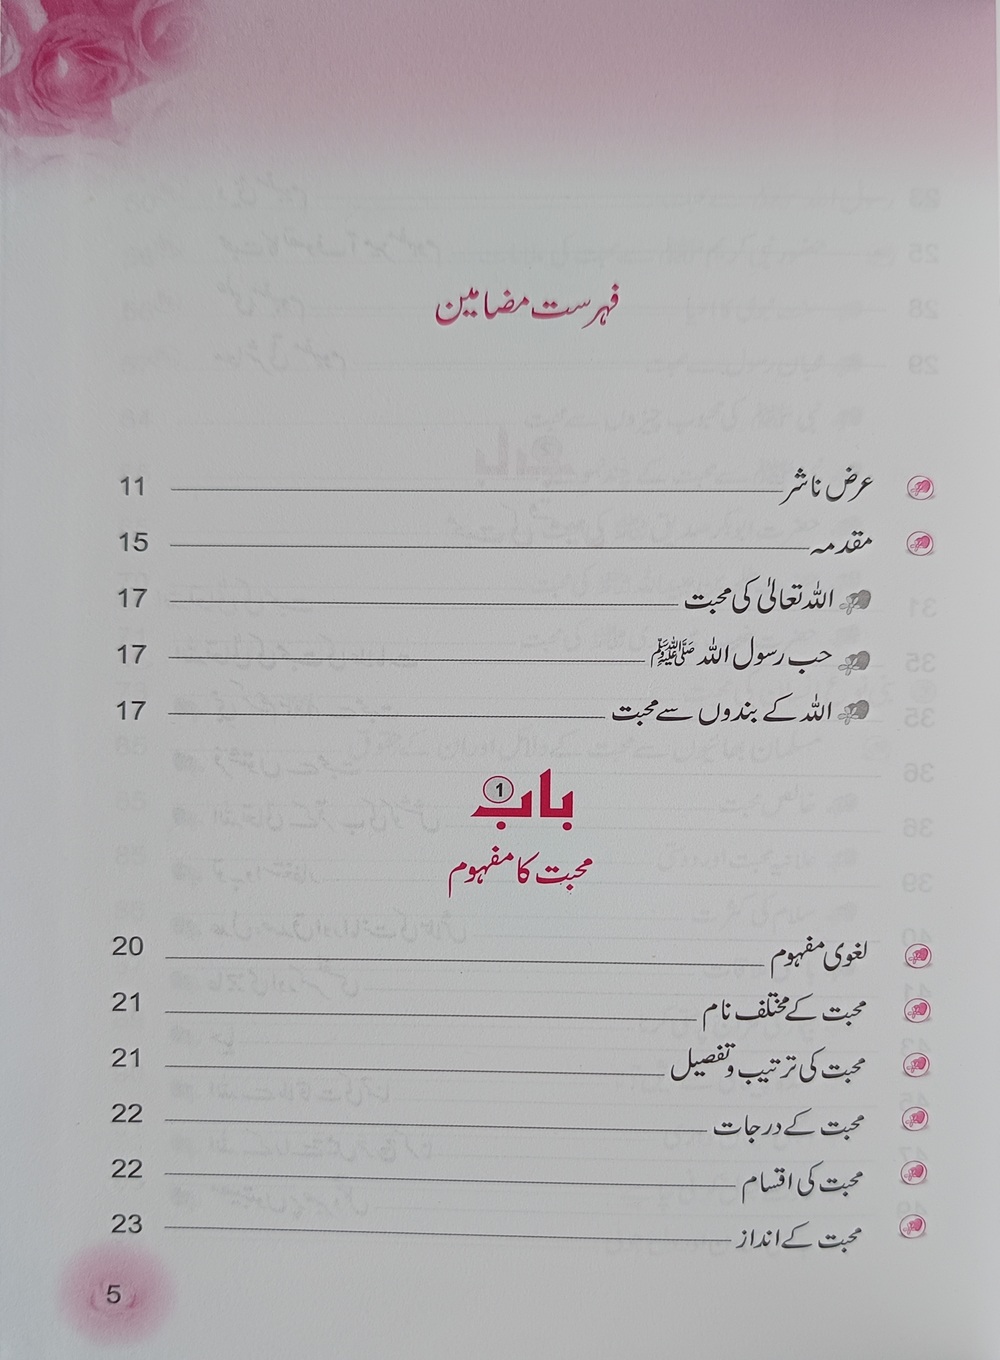 فہرست مضامین
عرض ناشر 11
مقدمہ 15
اللہ تعالیٰ کی محبت 17
حب رسول اللہ ﷺ 17
اللہ کے بندوں سے محبت 17
باب 1
محبت کا مفہوم
لغوی مفہوم 20
محبت کے مختلف نام 21
محبت کی ترتیب و تفصیل 21
محبت کے درجات 22
محبت کی اقسام 22
محبت کے انداز 23
5